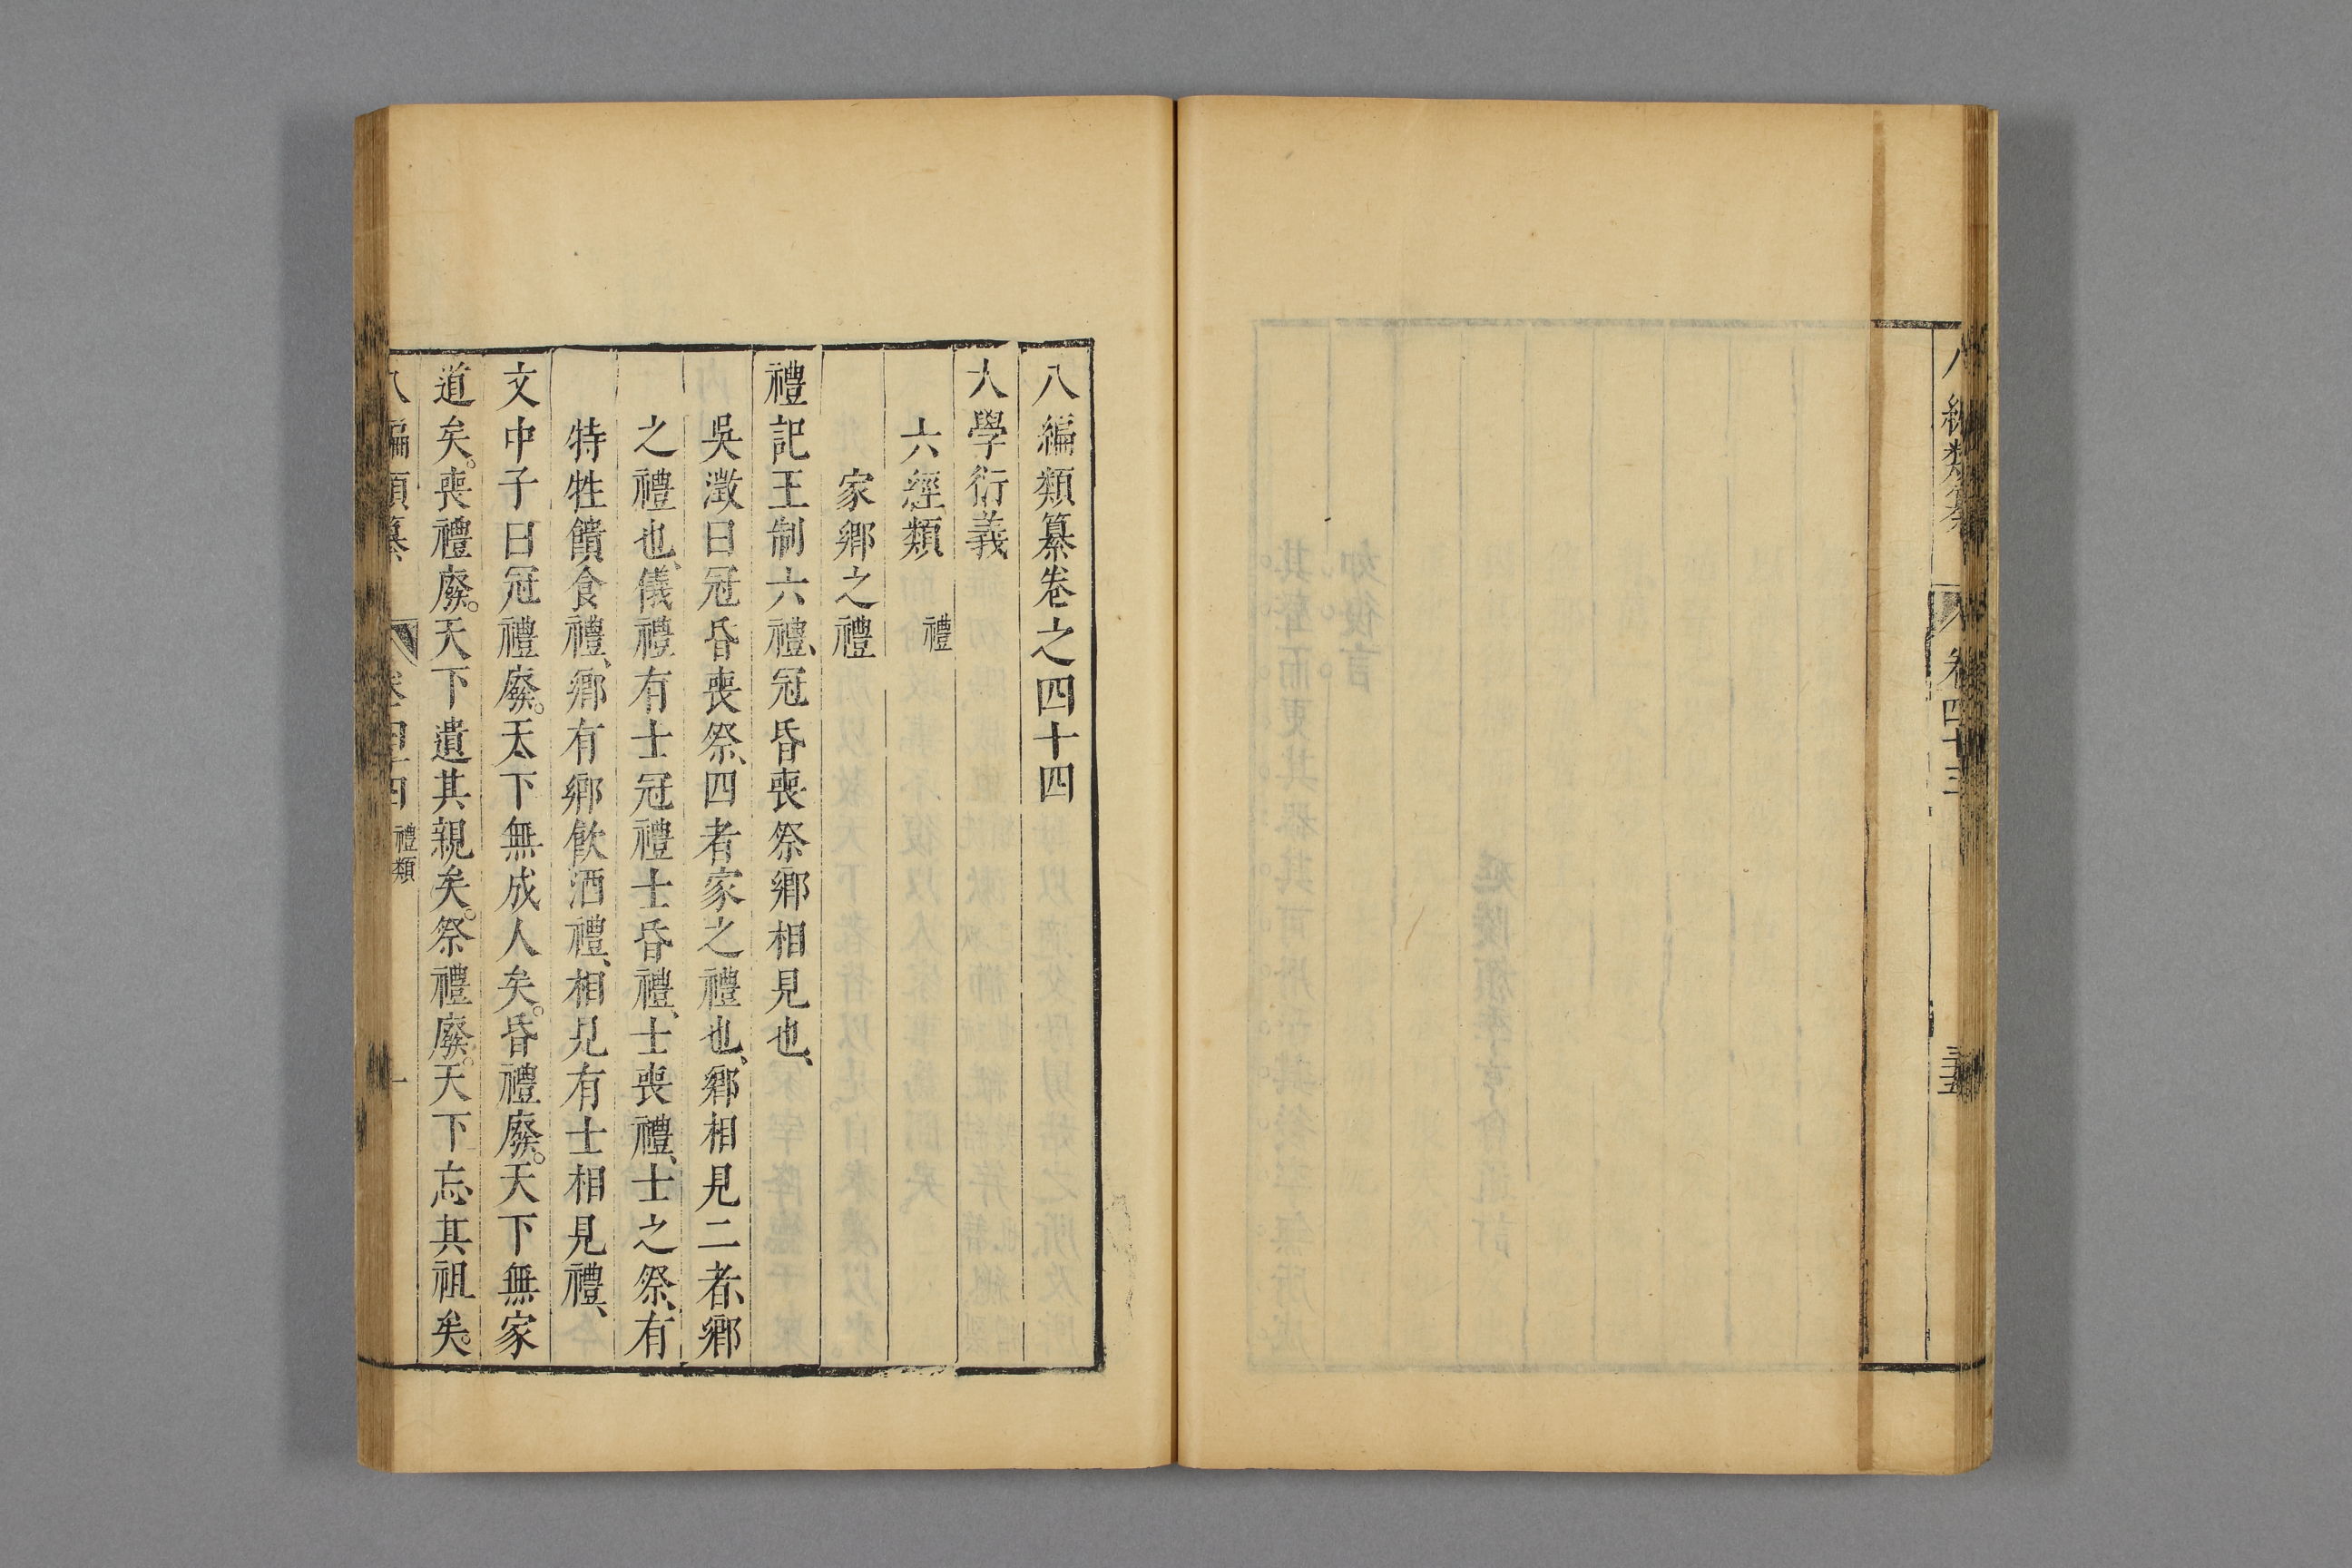 八編類纂 卷四十三 三十五
八編類纂卷之四十四
大學衍義
六經類 禮
家鄉之禮
禮記王制六禮、冠昏喪祭鄉相見也、
吳澂曰冠昏喪祭、四者家之禮也、鄉相見二者、鄉
之禮也、儀禮有士冠禮士昏禮、士喪禮、士之祭、有
特牲饋食禮、鄉有鄉飲酒禮、相見有士相見禮、
文中子曰冠禮廢。天下無成人矣。昏禮廢。天下無家
道矣。喪禮廢。天下遺其親矣。祭禮廢。天下忘其祖矣。
八編類纂 卷四十四 禮類 一